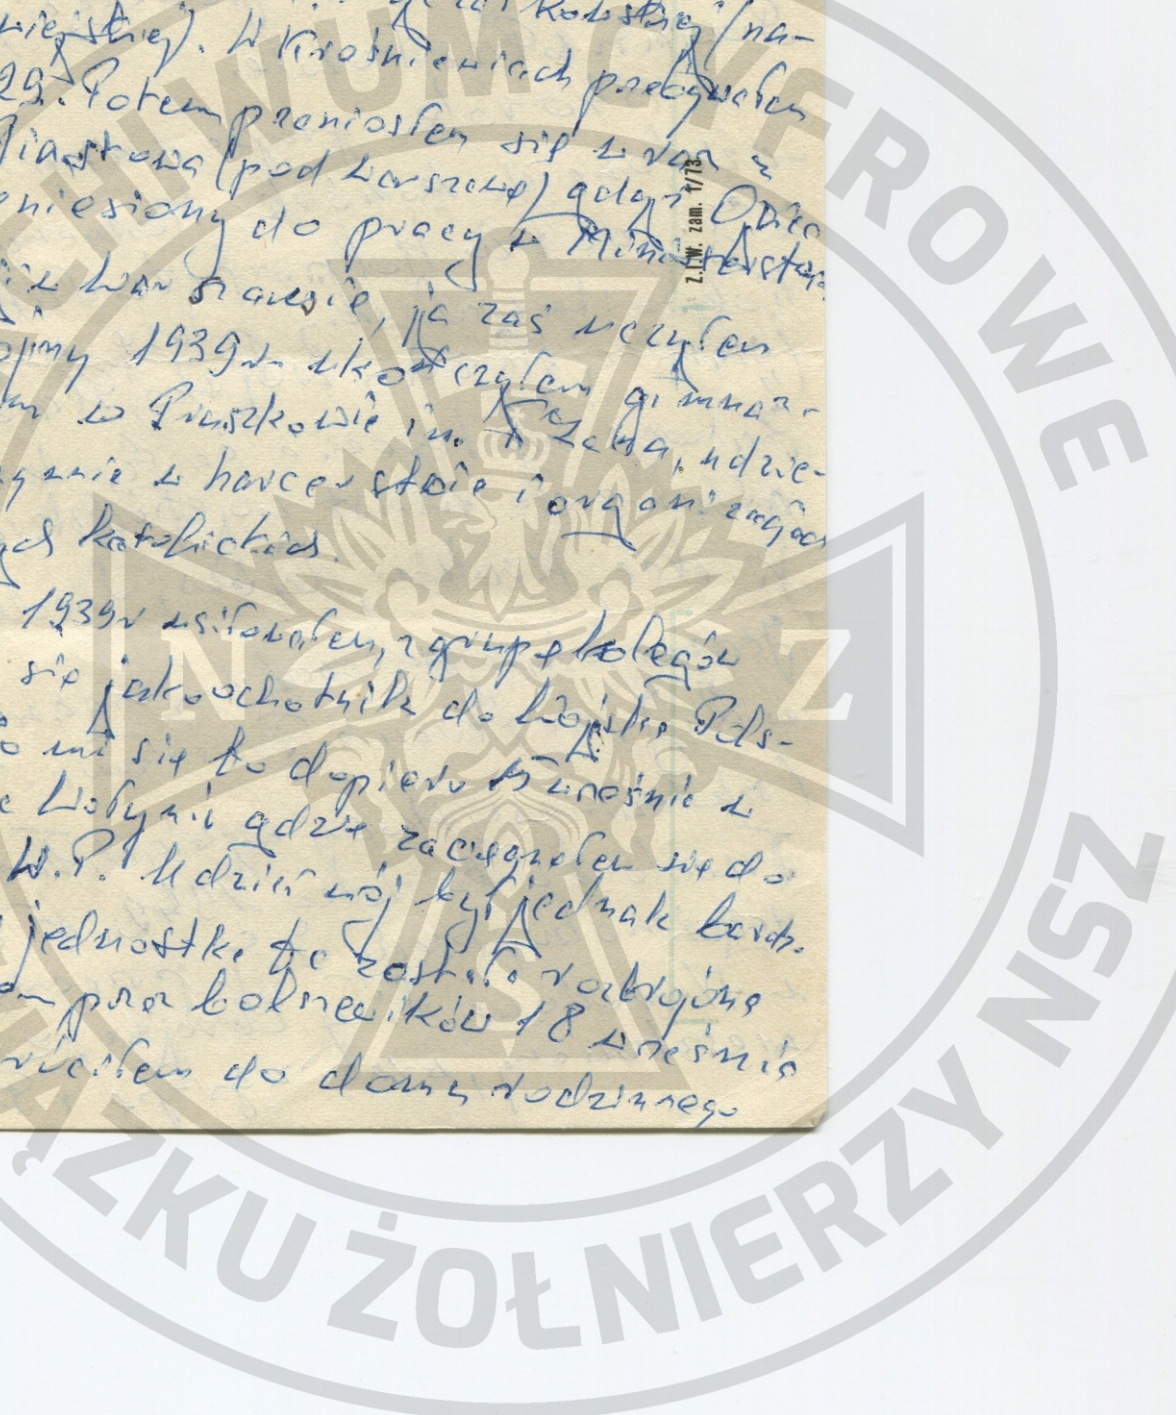 wiejskiej). W Krośniewicach przebywałem
29. Potem przeniosłem się wraz z
Piastowa (pod Warszawą) gdyż Ojciec
eniesiony do pracy w Ministerstw
i w Warszawie, ja zaś uczyłem
ojny 1939 r ukończyłem gimnaz-
um w Pruszkowie im. T. Zana, udzie-
ynnie w harcerstwie i organizacjach
ych katolickich.
1939 r usiłowałem, z grupą kolegów
się jako ochotnik do Wojska Pols-
o mi się to dopiero 15 września w
Wołyniu gdzie zaciągnąłem się do
W.P. Udział mój był jednak bardz.
jednostka ta została rozbrojona
przez bolszewików 18 września
róciłem do domu rodzinnego
Z.I.W. zam. 1/73
CHIWUM CYFROWE
ĄZKU ŻOŁNIERZY NSZ
N
Z
S